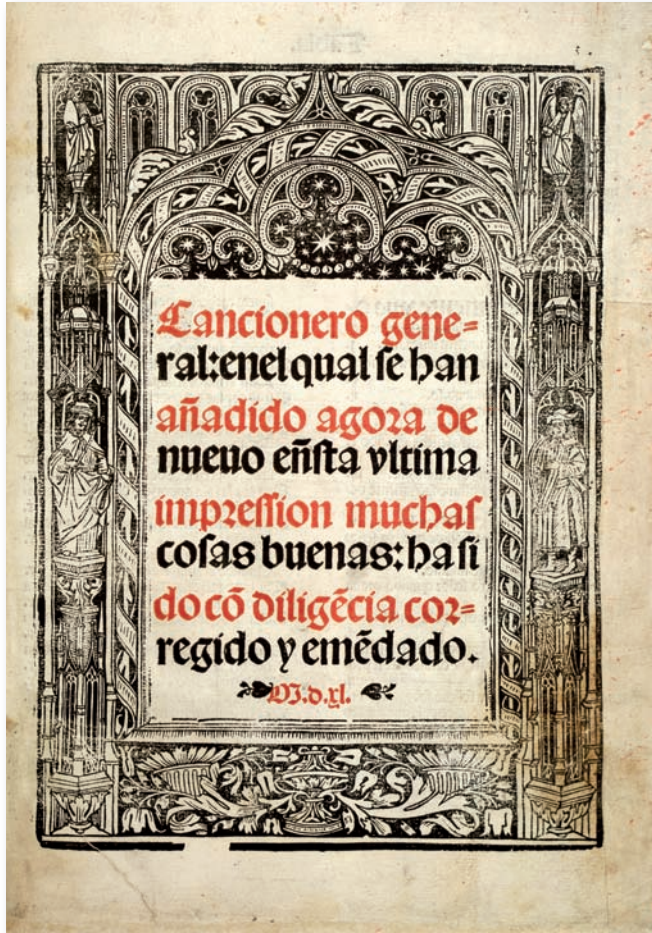 Cancionero gene=
ral:enel qual ſe han
añadido agora de
nueuo eñſta vltima
impreſſion muchaſ
coſas buenas: ha ſi
do cõ diligẽcia cor=
regido y emẽdado.
M.d.xl.